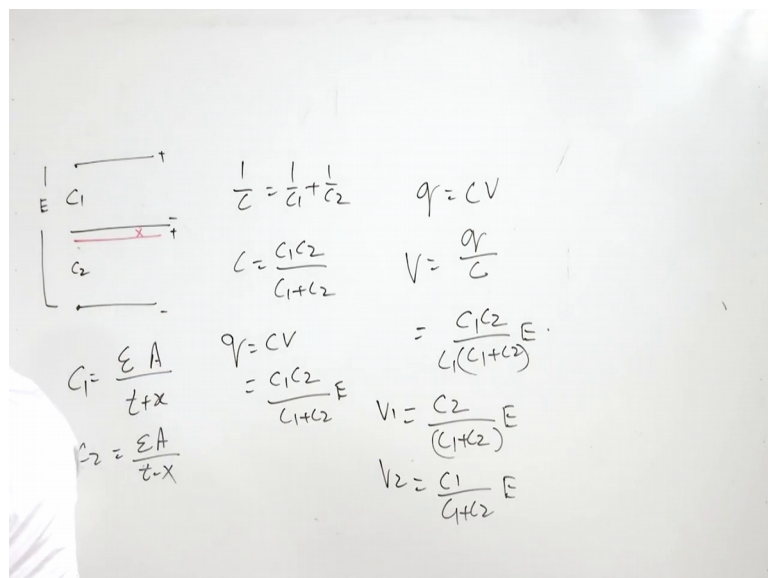 +
E C1
-
x +
C2
-
C1 = εA / t+x
C2 = εA / t-x
1/C = 1/C1 + 1/C2
C = C1C2 / C1+C2
q = CV
= C1C2 / C1+C2 E
q = CV
V = q / C
= C1C2 / C1(C1+C2) E.
V1 = C2 / (C1+C2) E
V2 = C1 / C1+C2 E